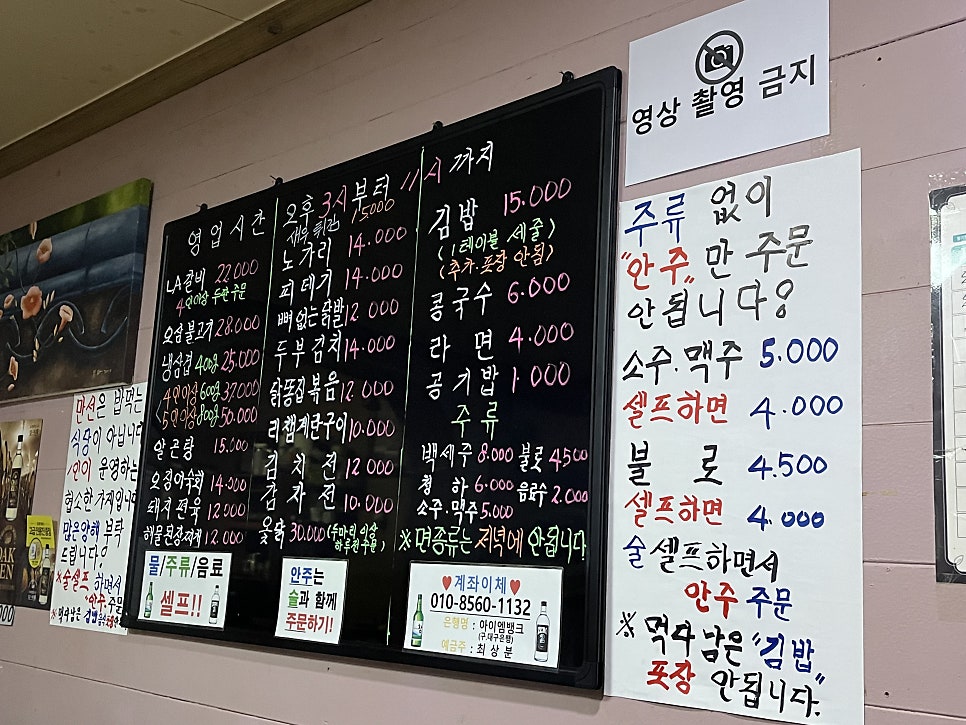 영상 촬영 금지
영업시간 오후 3시부터 11시까지
LA갈비 22,000
4인이상 두판 주문
오삼불고기 28,000
냉삼겹 400g 25,000
4인이상 600g 37,000
5인이상 800g 50,000
알곤탕 15,000
오징어숙회 14,000
돼지편육 12,000
해물된장찌개 12,000
새우튀김 15,000
노가리 14,000
피데기 14,000
뼈없는닭발 12,000
두부김치 14,000
닭똥집볶음 12,000
리챔계란구이 10,000
김치전 12,000
감자전 10,000
옻닭 30,000 (두마리 이상 하루전 주문)
김밥 15,000
(1테이블 세줄)
(추가·포장 안됨)
콩국수 6,000
라면 4,000
공기밥 1,000
주류
백세주 8,000 불로 4500
청하 6,000 음료수 2,000
소주·맥주 5,000
※면종류는 저녁에 안됩니다
물/주류/음료
셀프!!
안주는
술과 함께
주문하기!
♥계좌이체♥
010-8560-1132
은행명 : 아이엠뱅크
(구.대구은행)
예금주 : 최상분
만선은 밥먹는
식당이 아닙니다
1인이 운영하는
협소한 가게입니다
많은양해 부탁
드립니다!
※술셀프 하면서
"안주" 주문
※먹다남은 김밥
주류 없이
"안주"만 주문
안됩니다!
소주·맥주 5.000
셀프하면 4.000
불로 4.500
셀프하면 4.000
술 셀프하면서
안주 주문
※먹다 남은 "김밥"
포장 안됩니다.